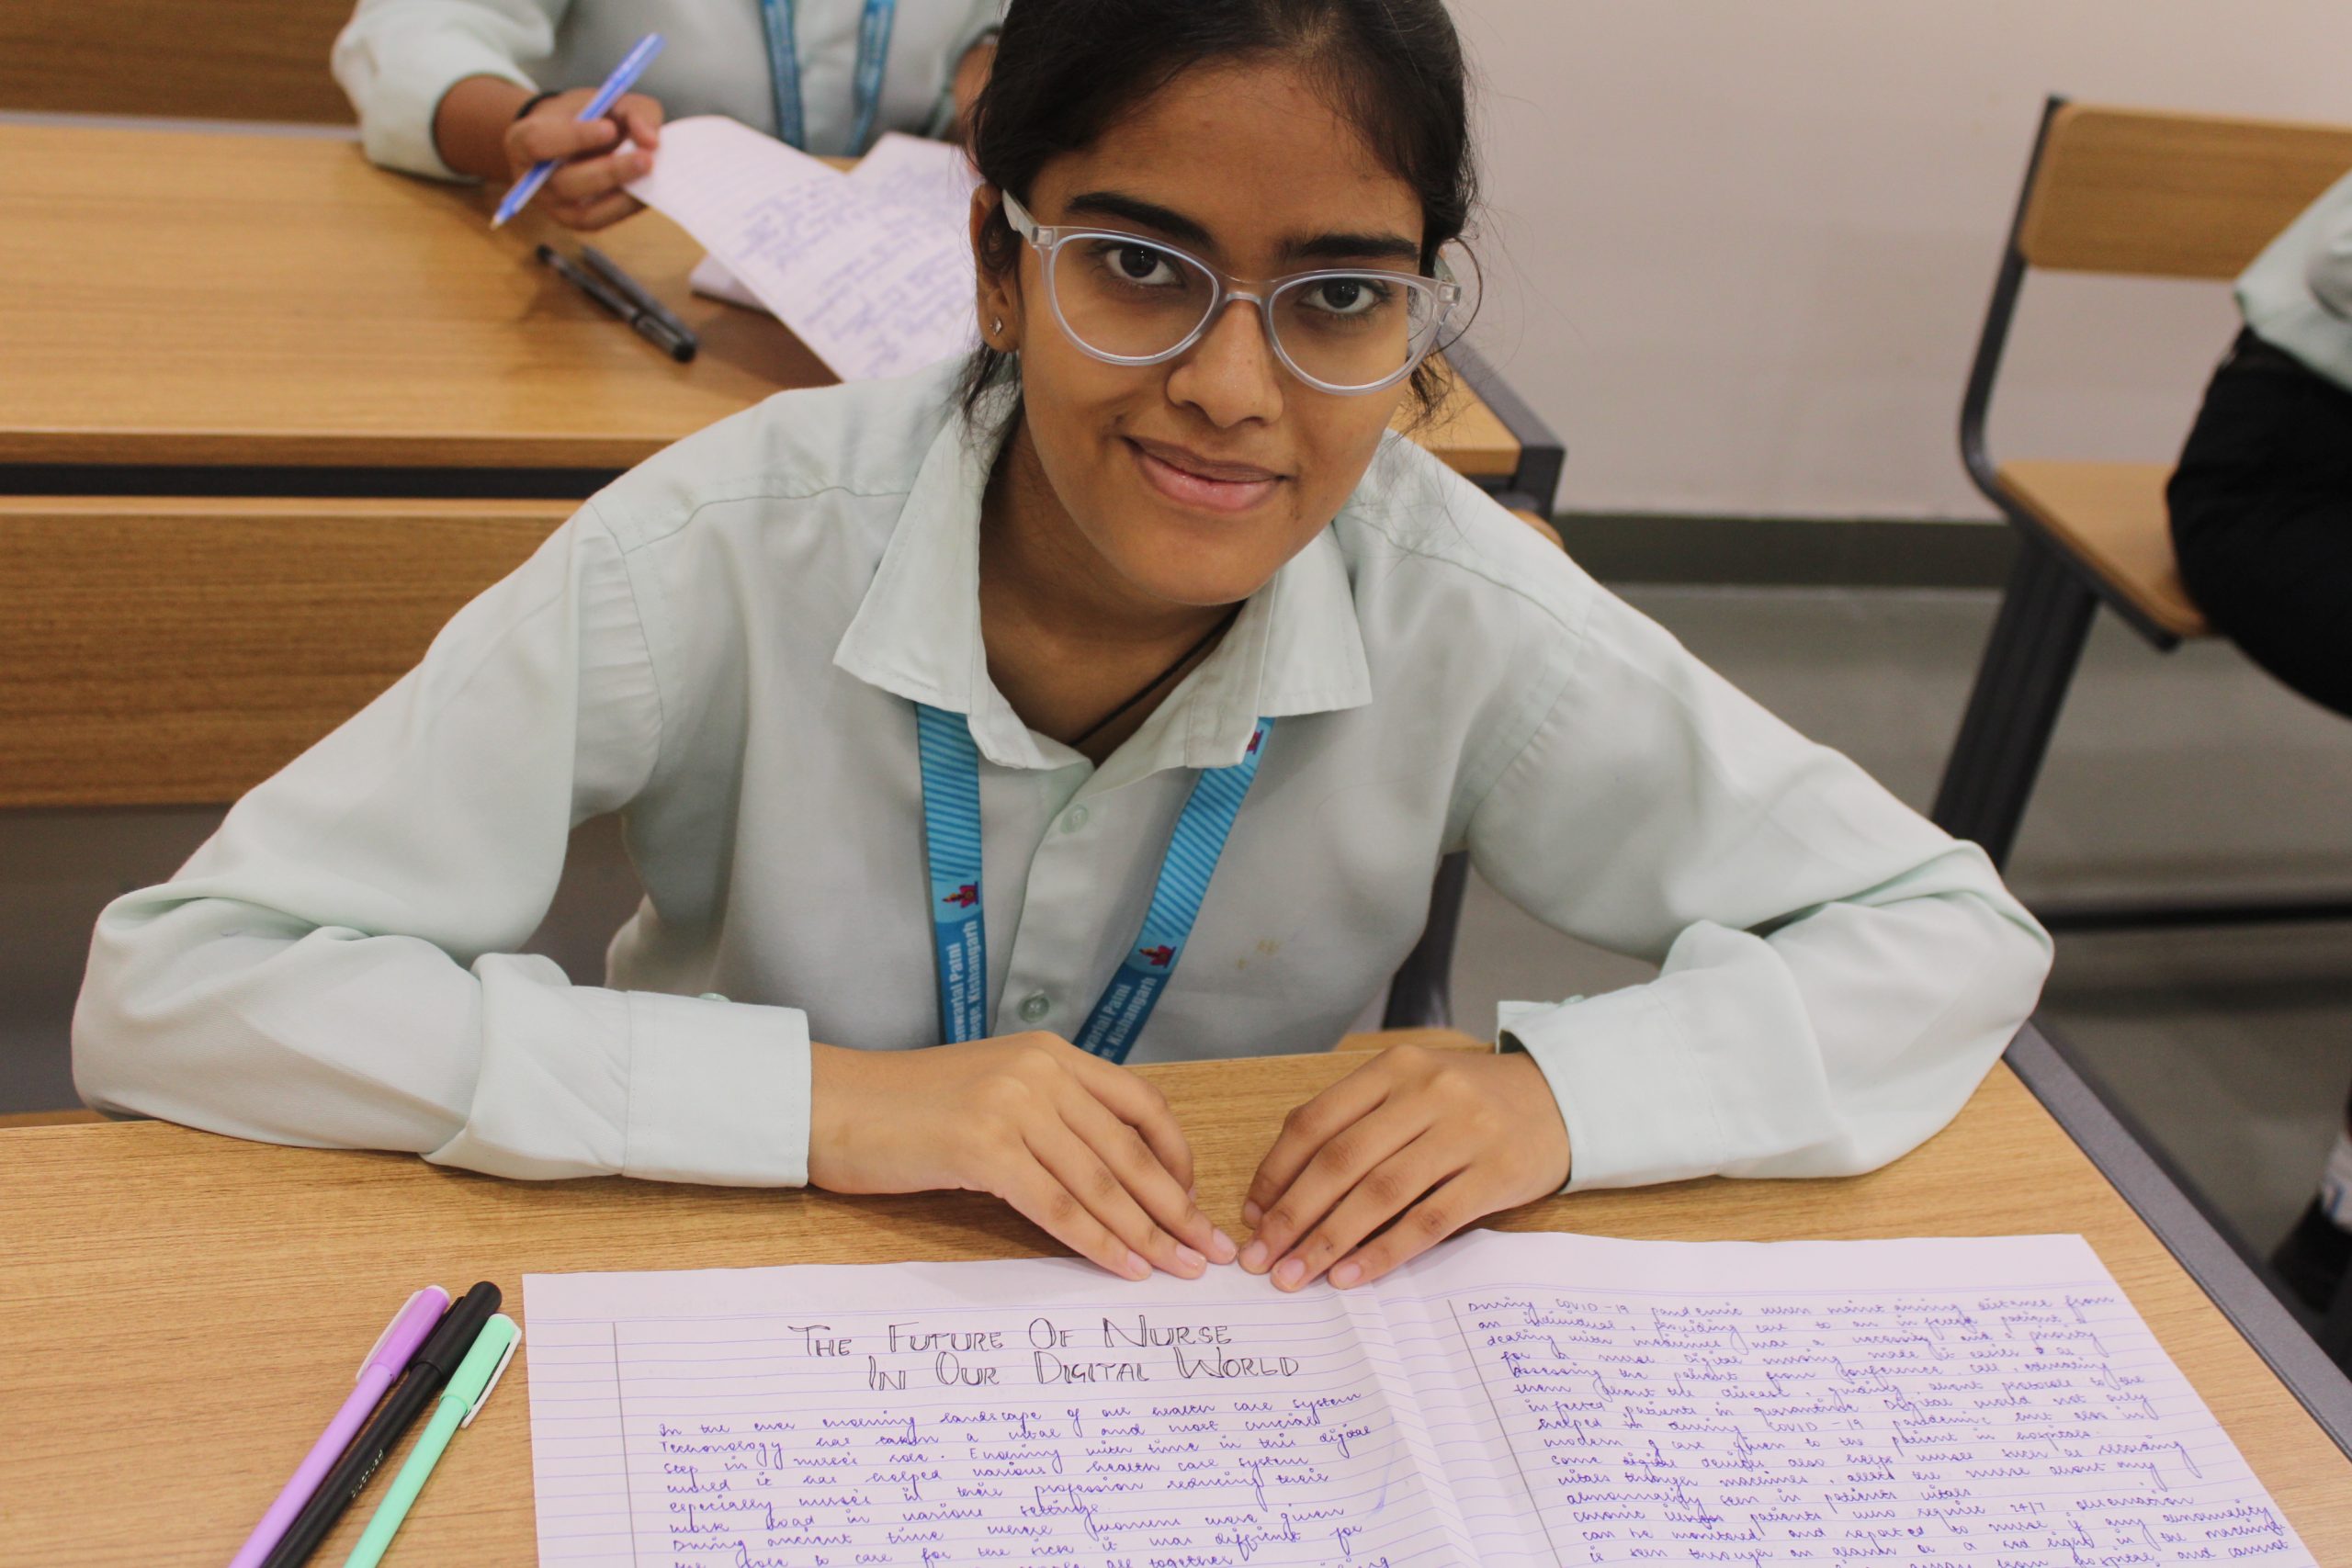 anwarlal Patni
lege, Kishangarh
warlal Patni
ge, Kishangarh
THE FUTURE OF NURSE
IN OUR DIGITAL WORLD
In the ever evolving landscape of our health care system
Technology has taken a vital and most crucial
step in nurse's role. Evolving with time in this digital
world it has helped various health care system
especially nurses in their profession reducing their
work load in various settings.
During ancient time where women were given
the role to care for the sick it was difficult for
all together
During COVID-19 pandemic when maintaining distance from
an individual, providing care to an infected patient &
dealing with medicines was a necessity and a priority
for a nurse. Digital nursing made it easier
assessing the patient from conference call, educating
them about the disease, guiding about protocols to the
infected patients in quarantine. Digital world not only
helped in during COVID-19 pandemic but also in
modern care given to the patient in hospitals.
some digital devices also helps nurses such as recording
vitals through machines, alerts the nurse about any
abnormality seen in patients vitals
chronic patients, who require 24/7 observation
can be monitored and reported to nurse if any abnormality
is seen through an alarm or a red light in the machine
from hospital and cannot